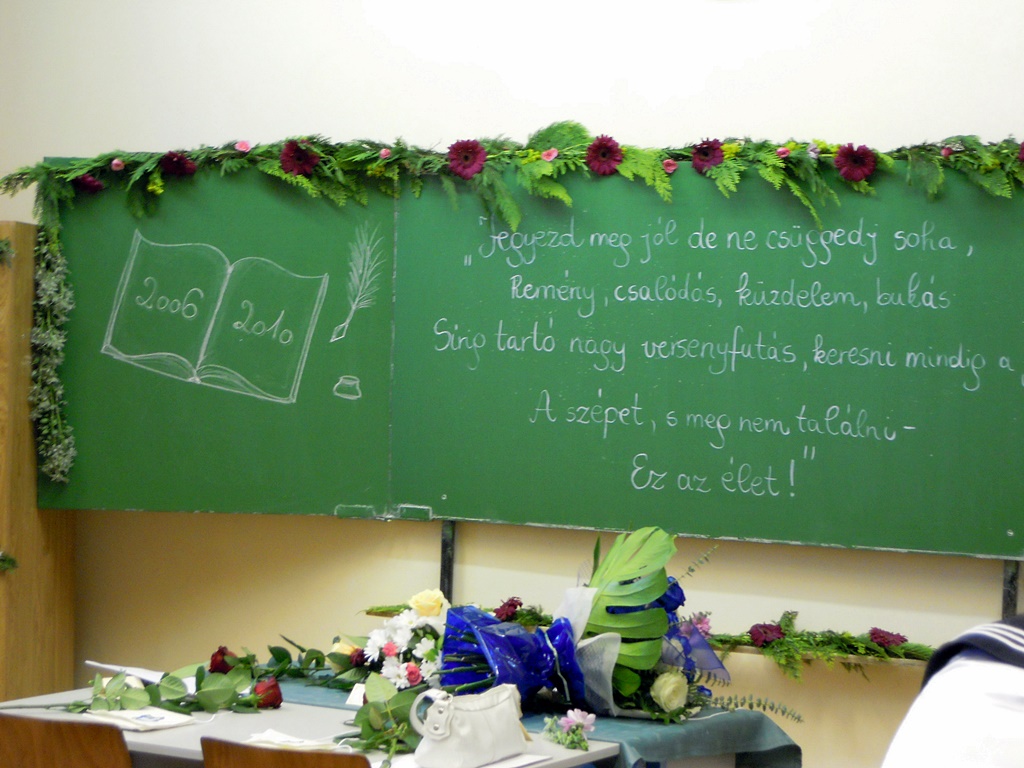 2006
2010
„Jegyezd meg jól de ne csüggedj soha,
Remény, csalódás, küzdelem, bukás
Sírig tartó nagy versenyfutás, keresni mindig a
A szépet, s meg nem találni-
Ez az élet!"